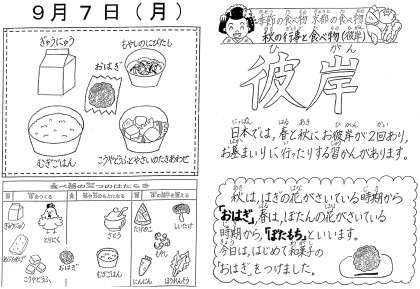 9月7日(月)
ぎゅうにゅう
もやしのにびたし
おはぎ
むぎごはん
こうやどうふとやさいのたきあわせ
食べ物の三つのはたらき
とりにく
おはぎ
さとう
むぎごはん
たけのこ
しいたけ
もやし
にんじん
ほうれんそう
季節の食べ物 京都の食べ物
秋の行事と食べ物(彼岸)
ひ がん
彼岸
日本では,春と秋にお彼岸が2回あり,
お墓まいりに行ったりする習かんがあります。
秋は,はぎの花がさいている時期から
「おはぎ」,春は,ぼたんの花がさいている
時期から,「ぼたもち」といいます。
今日は,はじめて和菓子の
「おはぎ」をつけました。